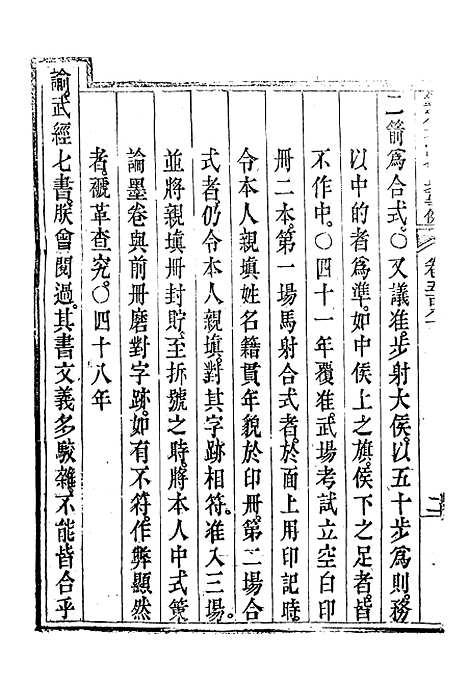 卷五百八
二箭爲合式。○又議准。步射大侯。以五十步爲則。務
以中的者爲準。如中侯上之旗。侯下之足者。皆
不作中。○四十一年覆准。武場考試立空白印
冊二本。第一場馬射合式者。於面上用印記。時
令本人親塡姓名籍貫年貌於印冊。第二場合
式者。仍令本人親塡。對其字跡相符。准入三場。
並將親塡冊封貯。至拆號之時。將本人中式
論墨卷與前冊磨對字跡。如有不符。作弊顯然
者。褫革查究。○四十八年
諭。武經七書。朕曾閱過。其書文義多駁雜。不能皆合乎